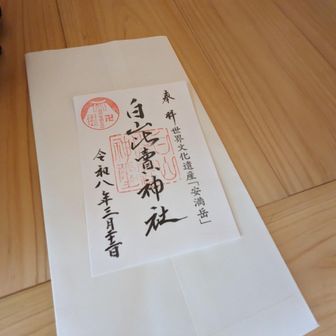 奉拝 世界文化遺産「安満岳」
白山比賣神社
令和八年三月